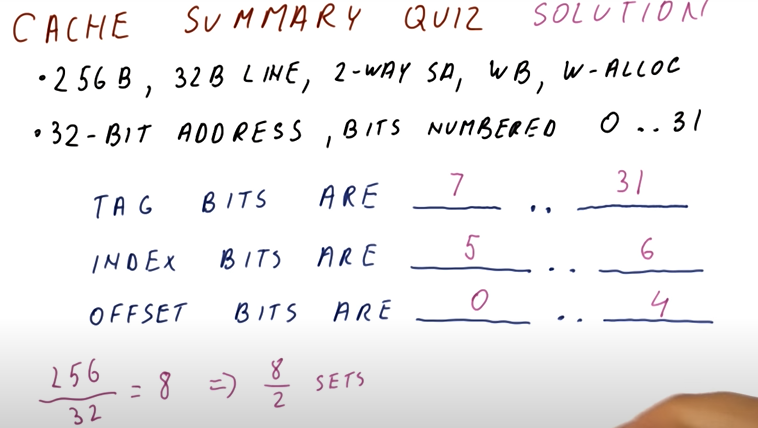 CACHE SUMMARY QUIZ SOLUTION
• 256B, 32B LINE, 2-WAY SA, WB, W-ALLOC
• 32-BIT ADDRESS, BITS NUMBERED 0 .. 31
TAG BITS ARE 7 .. 31
INDEX BITS ARE 5 .. 6
OFFSET BITS ARE 0 .. 4
256/32 = 8 => 8/2 SETS